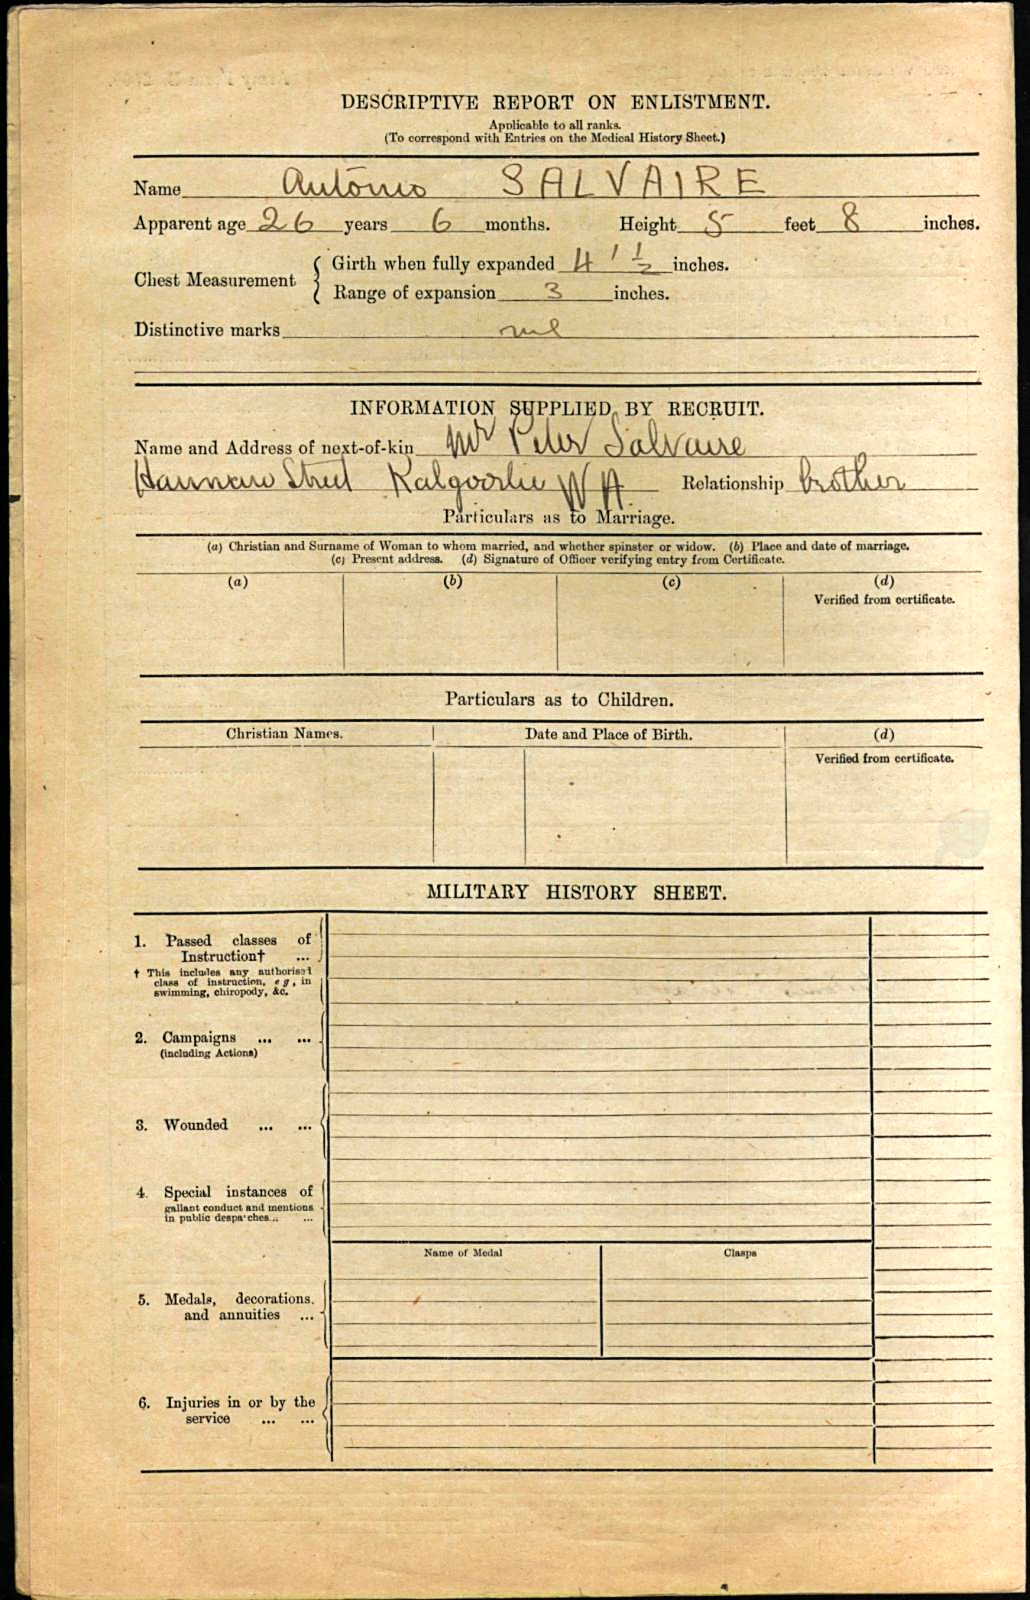 DESCRIPTIVE REPORT ON ENLISTMENT.
Applicable to all ranks.
(To correspond with Entries on the Medical History Sheet.)
Name Antonio SALVAIRE
Apparent age 26 years 6 months. Height 5 feet 8 inches.
Chest Measurement { Girth when fully expanded 4 1 1/2 inches.
Range of expansion 3 inches.
Distinctive marks nil
INFORMATION SUPPLIED BY RECRUIT.
Name and Address of next-of-kin Mr Peter Salvaire
Hannans Street Kalgoorlie W A Relationship brother
Particulars as to Marriage.
(a) Christian and Surname of Woman to whom married, and whether spinster or widow. (b) Place and date of marriage.
(c) Present address. (d) Signature of Officer verifying entry from Certificate.
(a) (b) (c) (d)
Verified from certificate.
Particulars as to Children.
Christian Names. Date and Place of Birth. (d)
Verified from certificate.
MILITARY HISTORY SHEET.
1. Passed classes of
Instruction† ...
† This includes any authorised
class of instruction, e g, in
swimming, chiropody, &c.
2. Campaigns ... ...
(including Actions)
3. Wounded ... ...
4. Special instances of
gallant conduct and mentions
in public despatches... ...
Name of Medal Clasps
5. Medals, decorations,
and annuities ...
6. Injuries in or by the
service ... ...